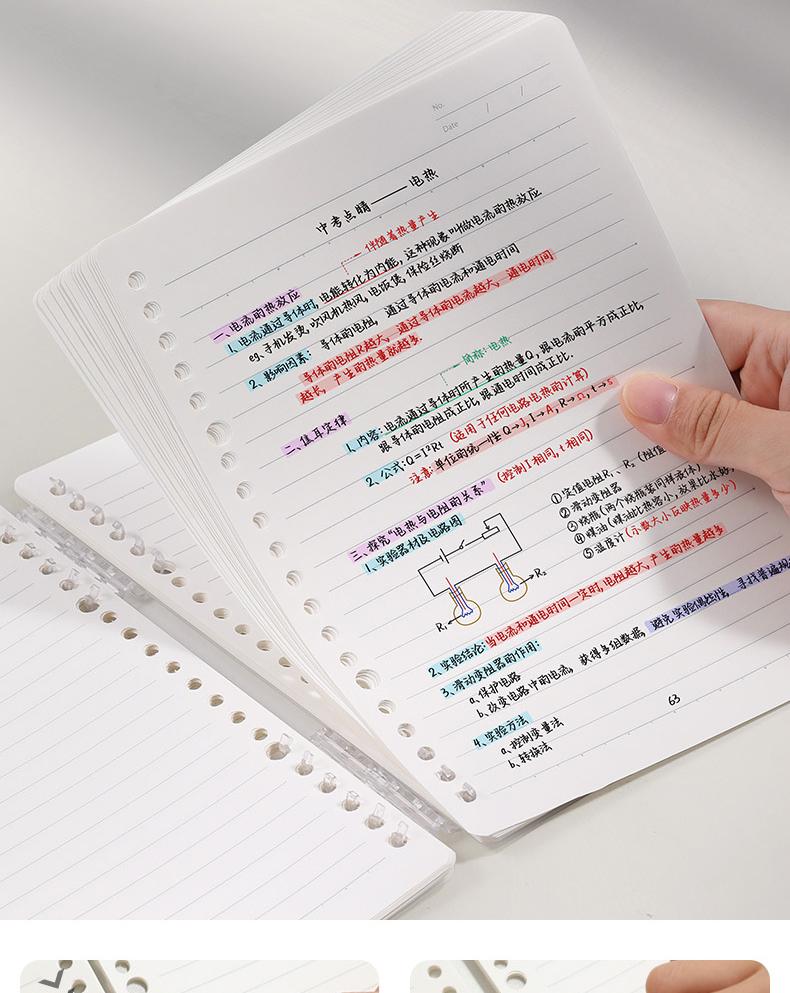 No.
Date / /
中考点睛——电热
伴随着热量产生
一、电流的热效应
1、电流通过导体时,电能转化为内能,这种现象叫做电流的热效应
eg.手机发烫、吹风机热风,电饭煲,保险丝烧断
2、影响因素: 导体的电阻, 通过导体的电流和通电时间
导体的电阻R越大、通过导体的电流越大、通电时间
越长,产生的热量就越多.
简称:电热
二、焦耳定律
1、内容:电流通过导体时所产生的热量Q,跟电流的平方成正比,
跟导体的电阻成正比,跟通电时间成正比.
2、公式:Q=I²Rt (适用于任何电路电热的计算)
注意:单位的统一性 Q→J, I→A, R→Ω, t→s
三、探究“电热与电阻的关系” (控制I相同,t相同)
1、实验器材及电路图
①定值电阻R₁、R₂(阻值
②滑动变阻器
③烧瓶(两个烧瓶装同样液体)
④煤油(煤油比热容小,效果比水好
⑤温度计(示数大小反映热量多少)
R₁
R₂
2、实验结论:当电流和通电时间一定时,电阻越大,产生的热量越多
3、滑动变阻器的作用:
a、保护电路
b、改变电路中的电流, 获得多组数据, 避免实验偶然性, 寻找普遍规
4、实验方法
a、控制变量法
b、转换法
63